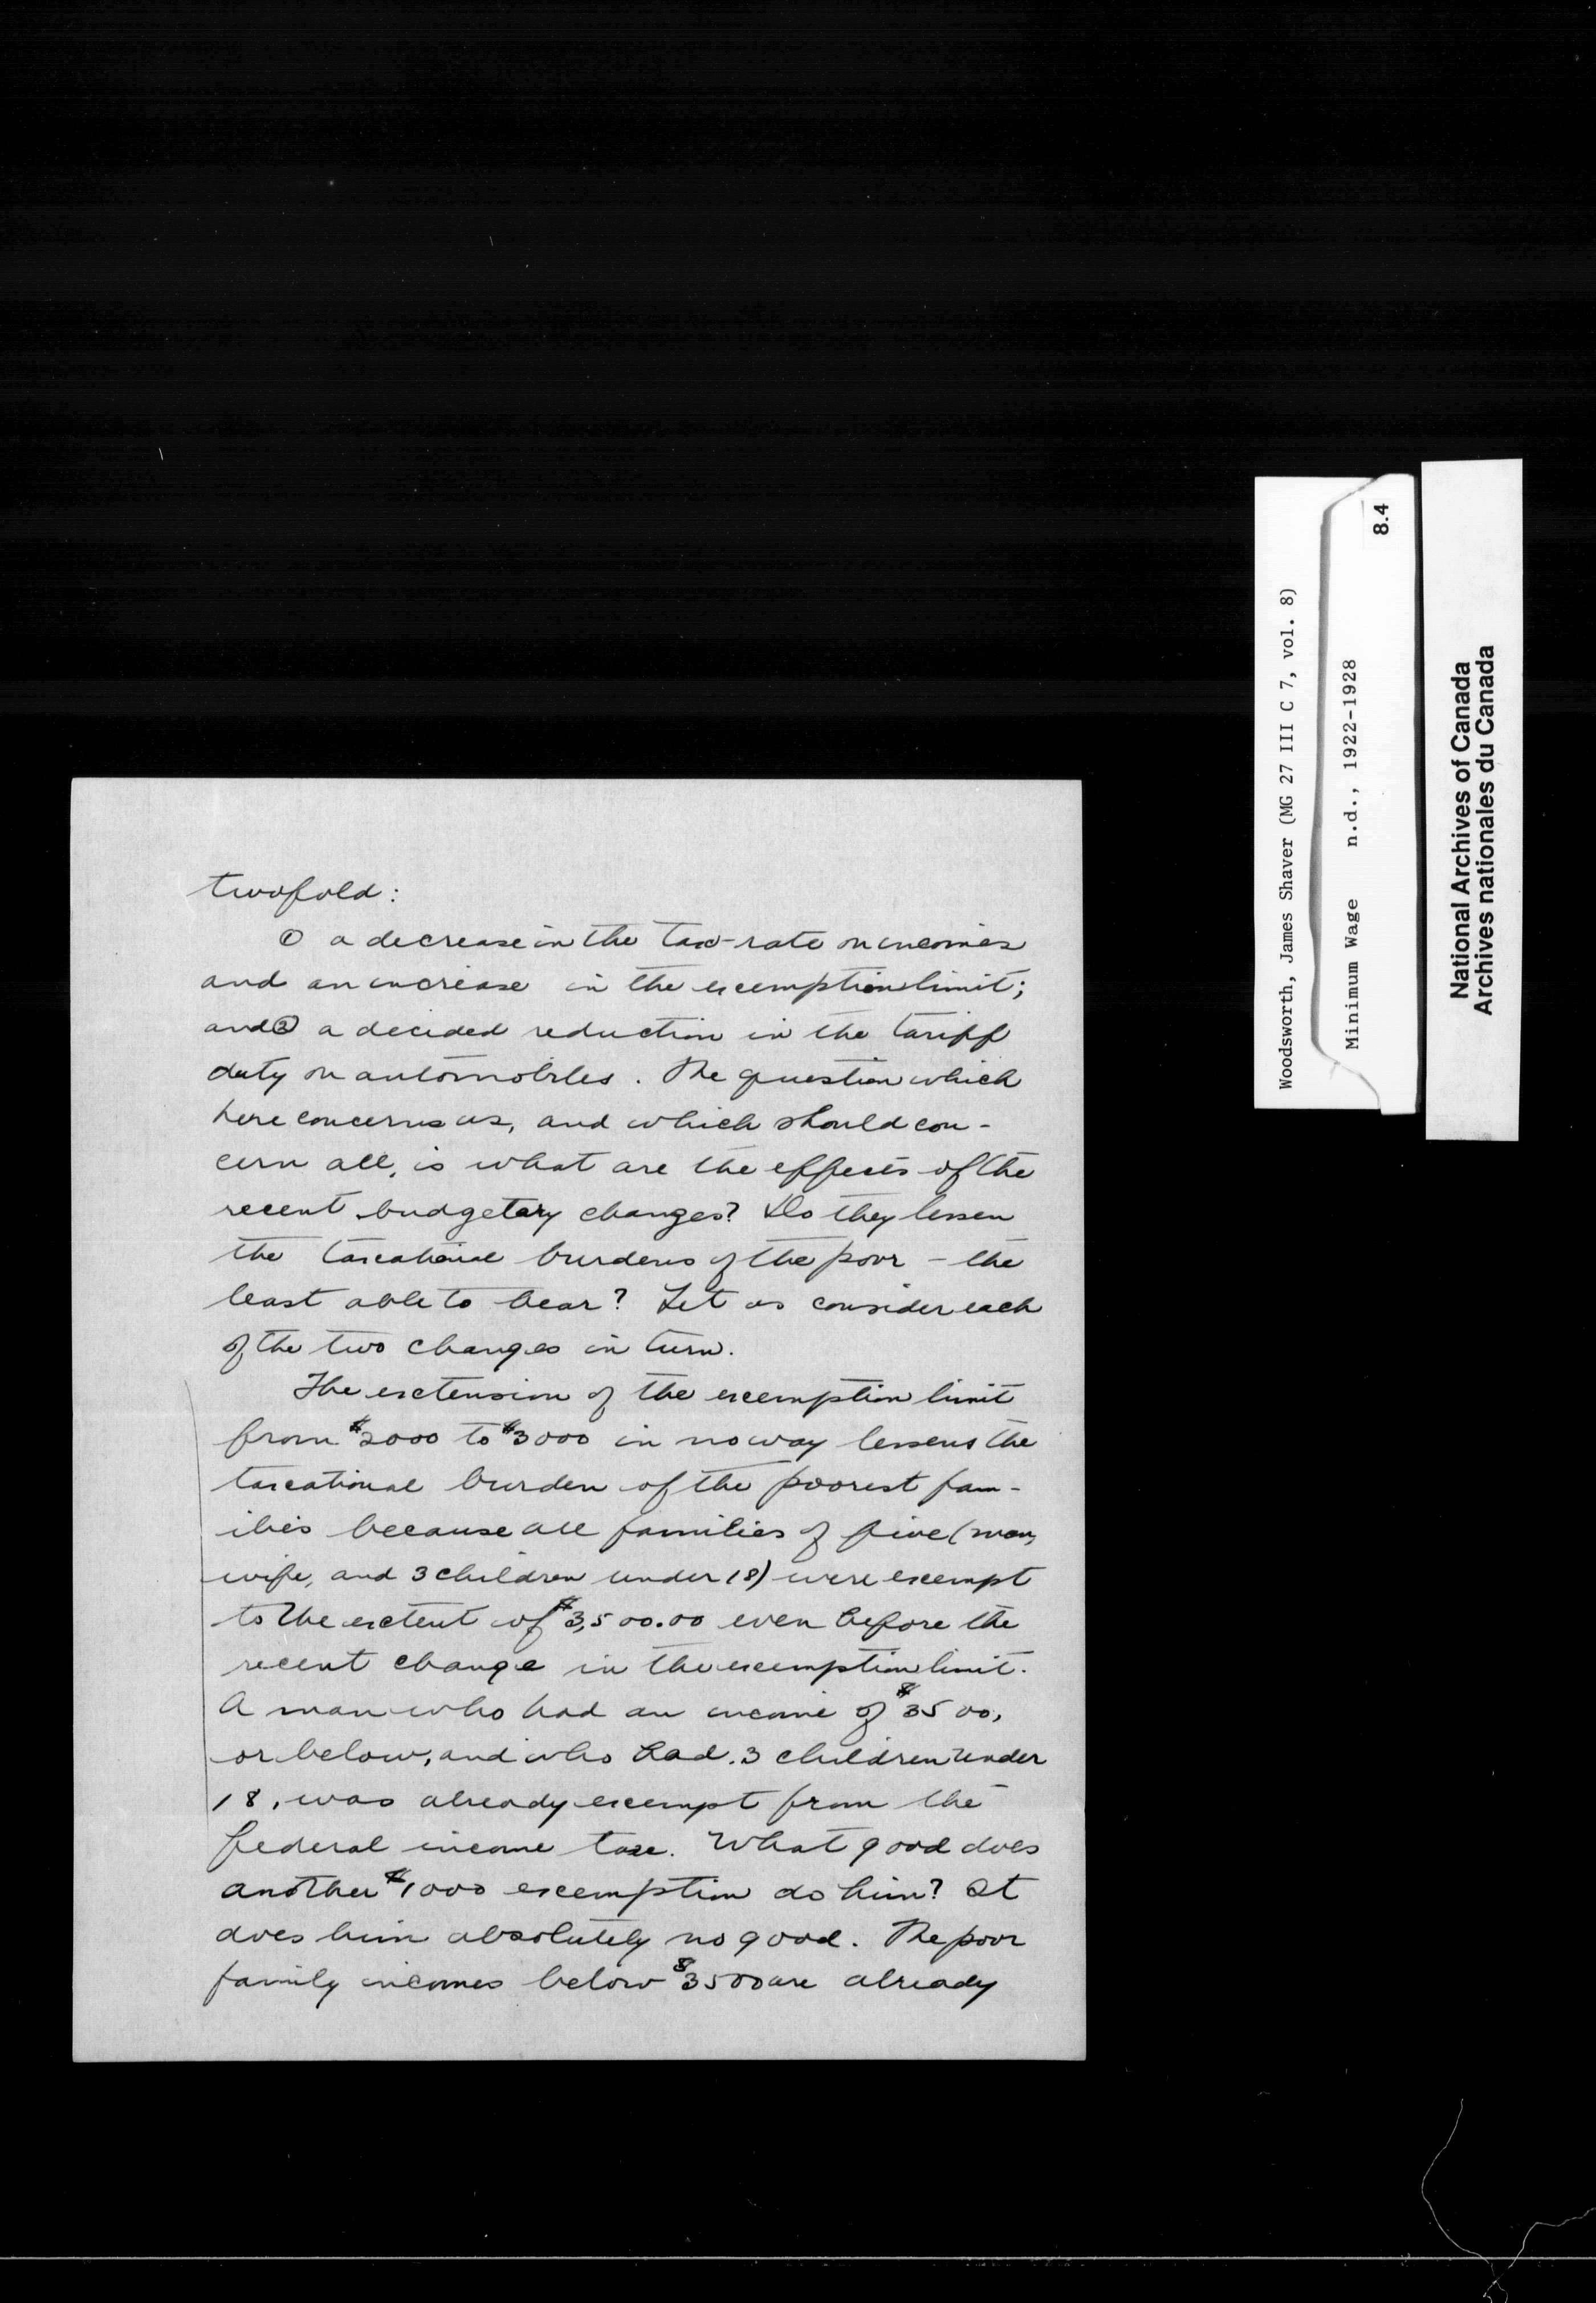 twofold:
① a decrease in the tax-rate on incomes
and an increase in the exemption limit;
and ② a decided reduction in the tariff
duty on automobiles. The question which
here concerns us, and which should con-
cern all, is what are the effects of the
recent budgetary changes? Do they lessen
the taxational burdens of the poor - the
least able to bear? Let us consider each
of the two changes in turn.
The extension of the exemption limit
from $2000 to $3000 in no way lessens the
taxational burden of the poorest fam-
ilies because all families of five (man,
wife, and 3 children under 18) were exempt
to the extent of $3,500.00 even before the
recent change in the exemption limit.
A man who had an income of $3500,
or below, and who had 3 children under
18, was already exempt from the
federal income tax. What good does
another $1000 exemption do him? It
does him absolutely no good. The poor
family incomes below $3500 are already
Woodsworth, James Shaver (MG 27 III C 7, vol. 8)
Minimum Wage n.d., 1922-1928
8.4
National Archives of Canada
Archives nationales du Canada